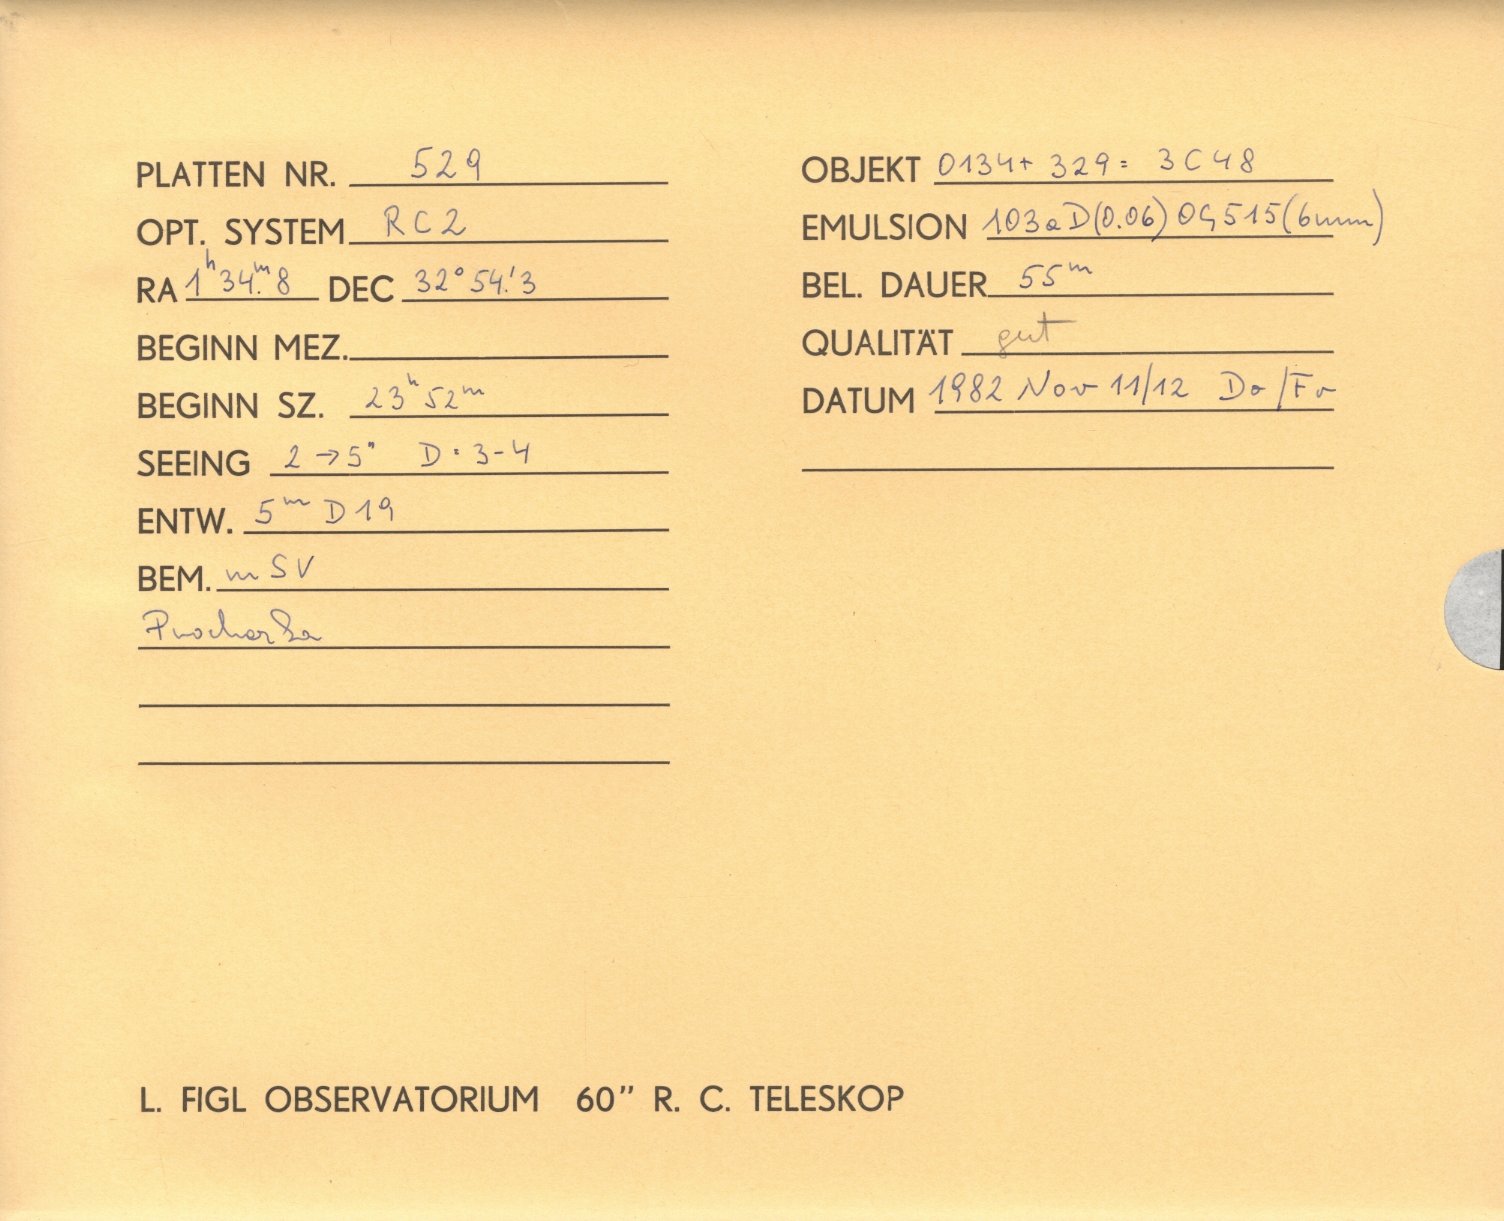 PLATTEN NR. 529
OPT. SYSTEM RC2
RA 1ʰ34ᵐ.8 DEC 32°54.'3
BEGINN MEZ.
BEGINN SZ. 23ʰ52ᵐ
SEEING 2→5" D: 3-4
ENTW. 5ᵐ D19
BEM. mSV
Prochaska
OBJEKT 0134+329= 3C48
EMULSION 103aD(0.06) OG515(6mm)
BEL. DAUER 55ᵐ
QUALITÄT gut
DATUM 1982 Nov 11/12 Do/Fr
L. FIGL OBSERVATORIUM 60" R. C. TELESKOP